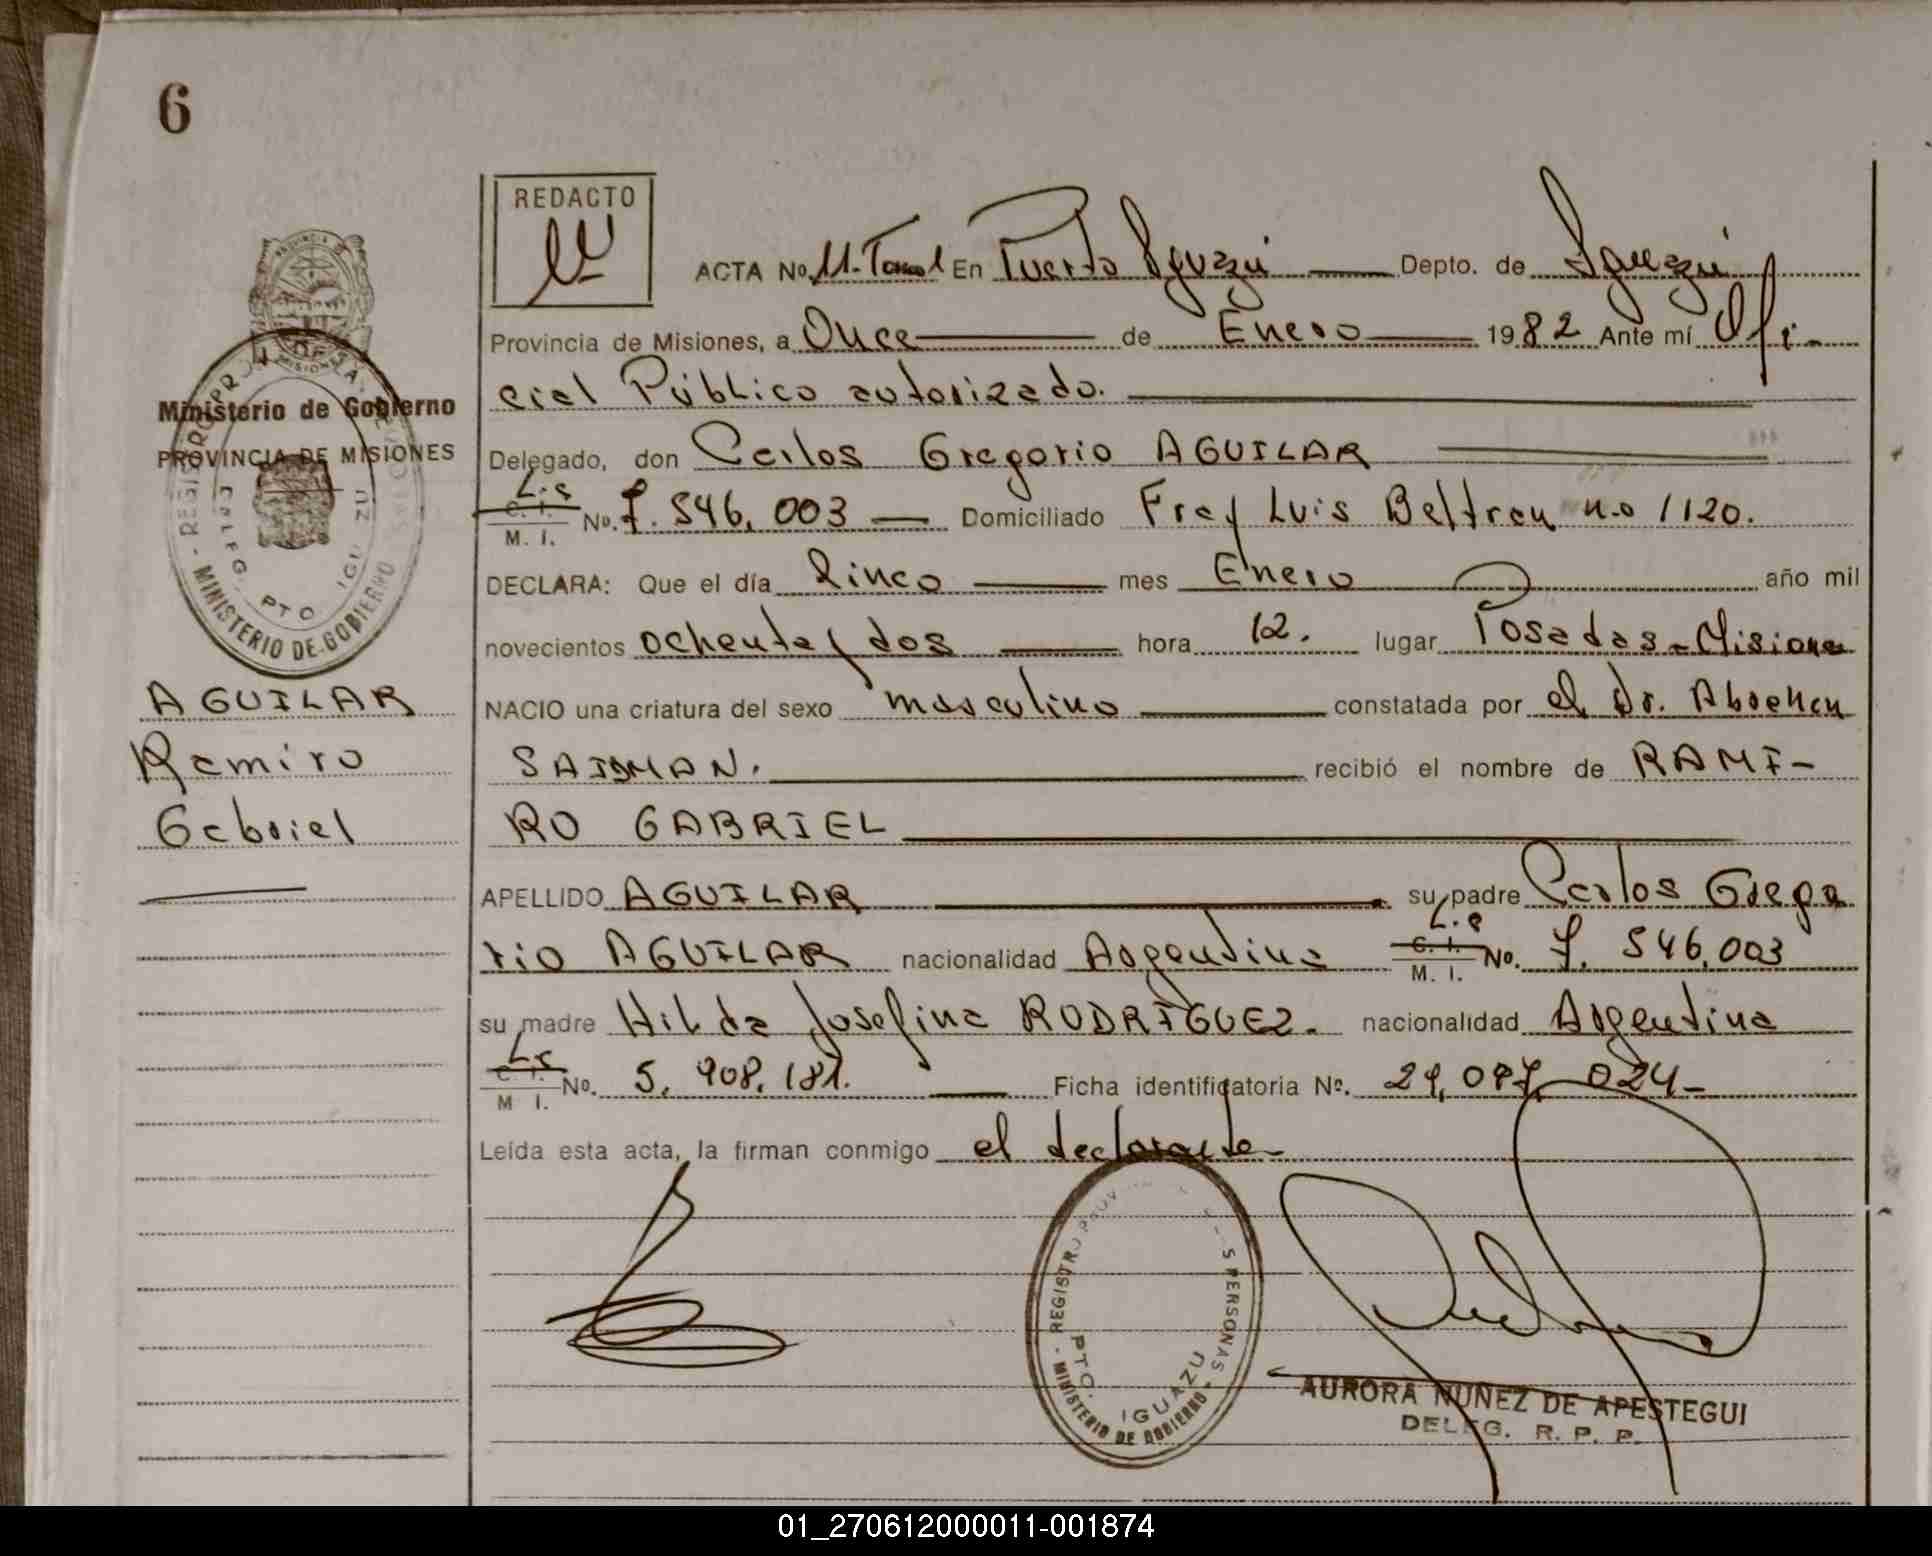 6
REDACTO
ACTA No. 11-Tomo 1 En Puerto Iguazú Depto. de Iguazú
Provincia de Misiones, a Once de Enero 1982 Ante mí Ofi-
cial Público autorizado.
Ministerio de Gobierno
PROVINCIA DE MISIONES
Delegado, don Carlos Gregorio AGUILAR
L.E
C. I.
M. I. No. 7.546.003 Domiciliado Fray Luis Beltran n.o 1120.
DECLARA: Que el día Cinco mes Enero año mil
novecientos ochenta y dos hora 12. lugar Posadas-Misiones
AGUILAR
Ramiro
Gabriel
NACIO una criatura del sexo masculino constatada por el Dr. Abraham
SAIDMAN. recibió el nombre de RAMI-
RO GABRIEL
APELLIDO AGUILAR su padre Carlos Grego
rio AGUILAR nacionalidad Argentina L.E C. I. M. I. No. 7.546.003
su madre Hilda Josefina RODRIGUEZ. nacionalidad Argentina
L.C
C. I.
M I. No. 5.908.181. Ficha identificatoria Nº. 29.097.024-
Leída esta acta, la firman conmigo el declarante-
MINISTERIO DE GOBIERNO
DELEG. PTO IGUAZU
MINISTERIO DE GOBIERNO - REGISTRO PROV PERSONAS
PTO. IGUAZU
AURORA NUÑEZ DE APESTEGUI
DELEG. R. P. P.
01_270612000011-001874